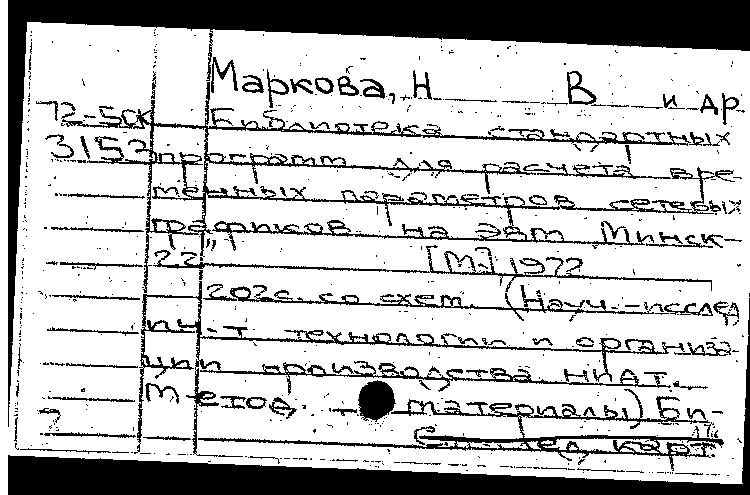 Маркова, Н В и др.
72-5ск Библиотека стандартных
3153 программ для расчета вре-
менных параметров сетевых
графиков на ЭВМ Минск-
22" [М.] 1972
202с. со схем. (Науч.-исслед
ин-т технологии и организа
ции производства НИАТ.
Метод. материалы) Би-
след карт